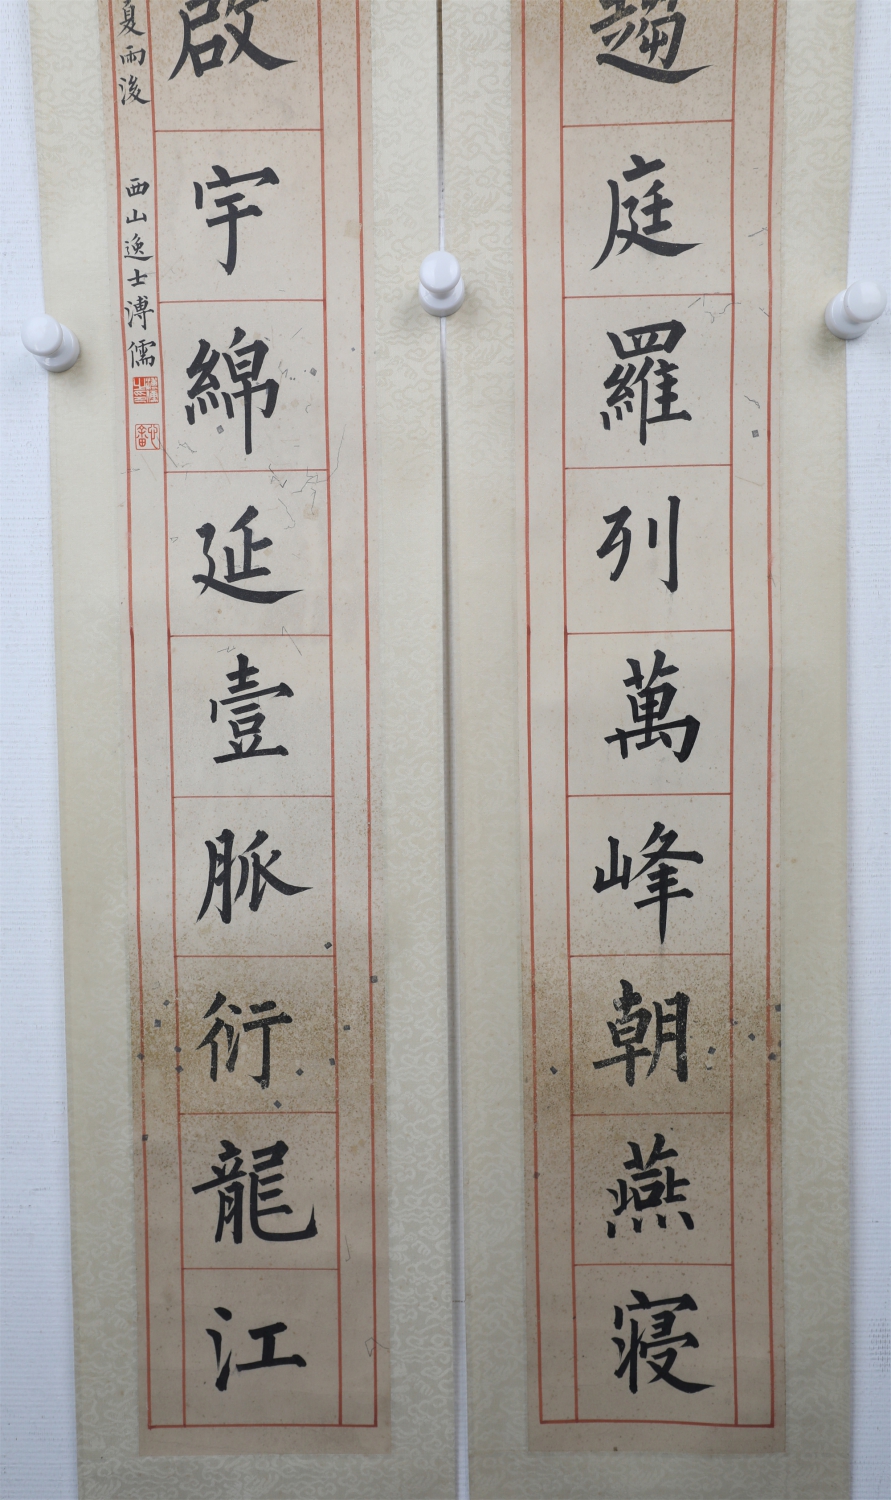 趨庭羅列萬峰朝燕寢
啟宇綿延壹脈衍龍江
夏雨後 西山逸士溥儒